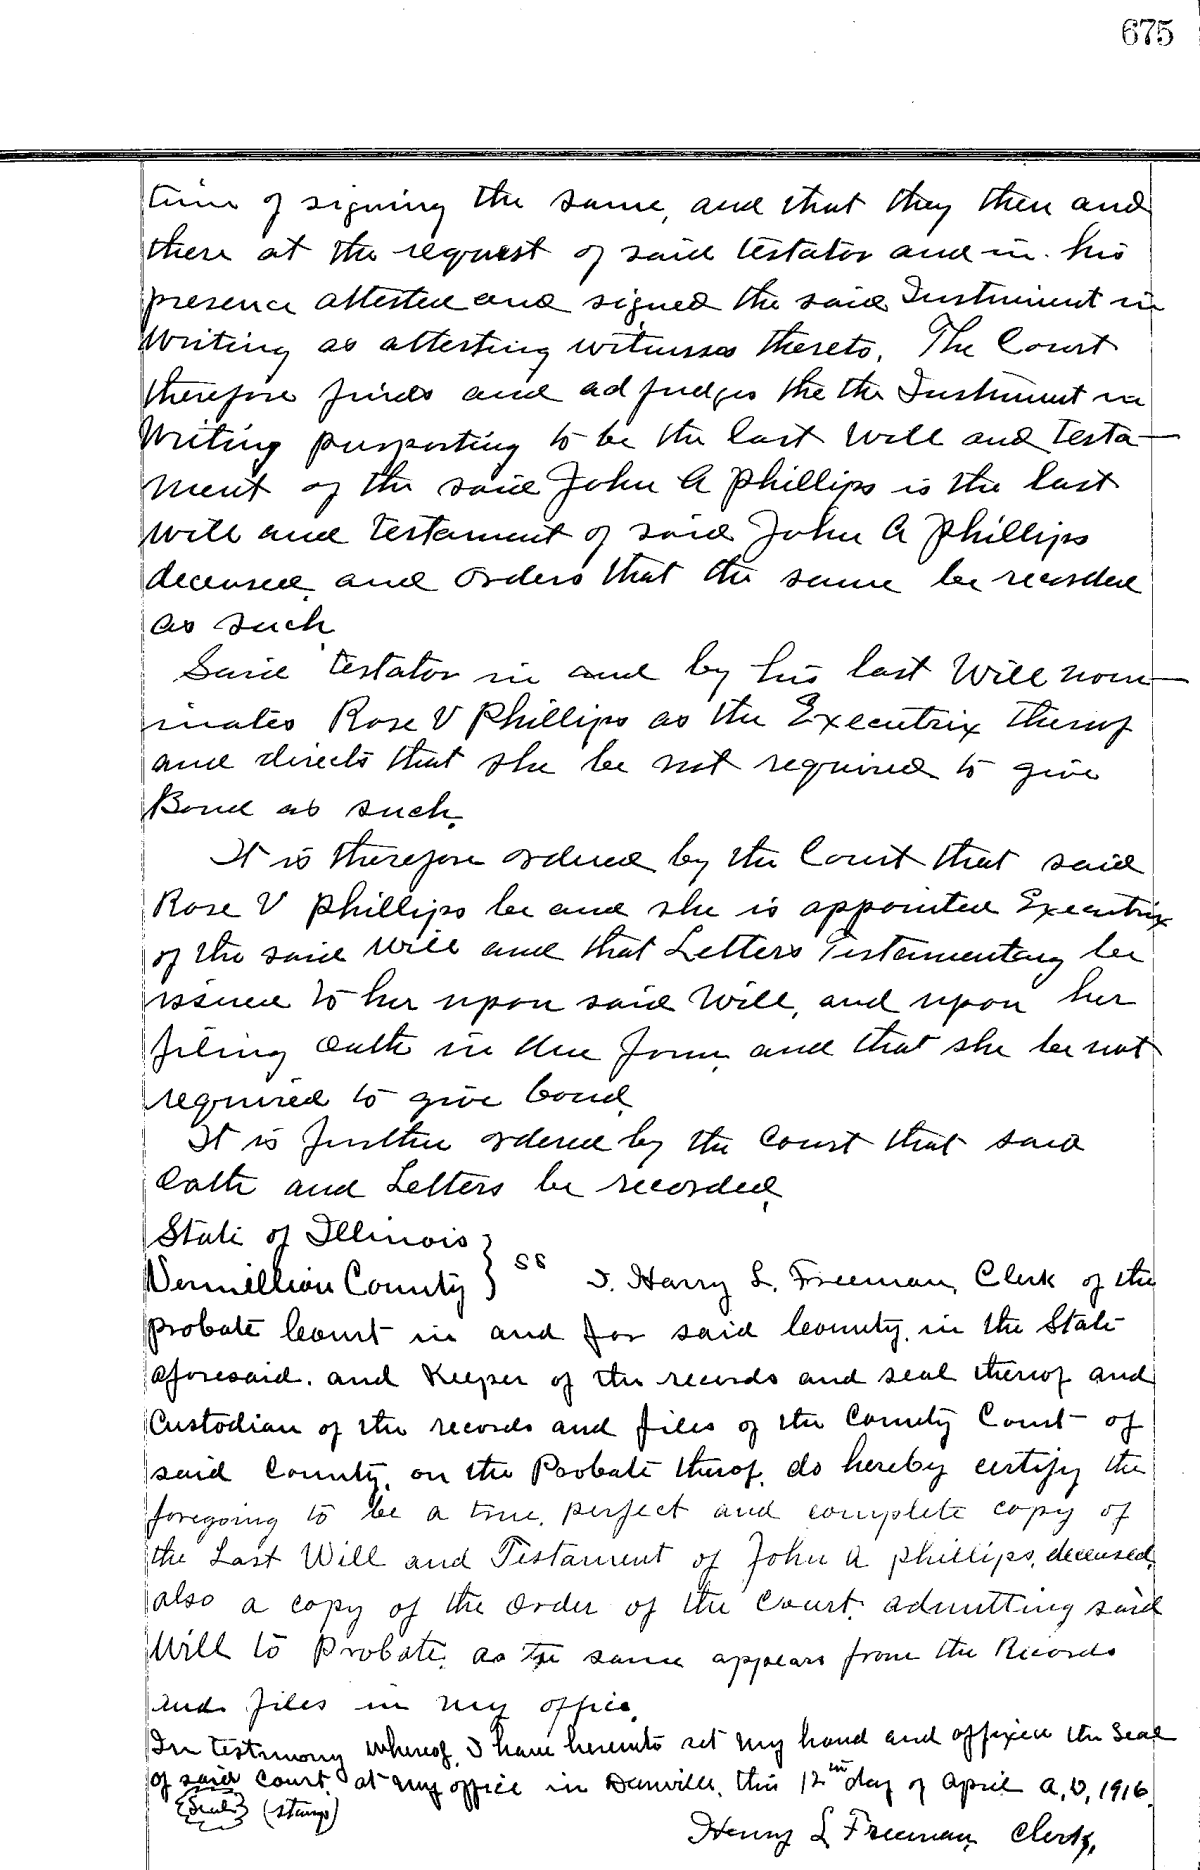 675
time of signing the same, and that they then and
there at the request of said testator and in his
presence attested and signed the said Instrument in
Writing as attesting witnesses thereto. The Court
therefore finds and adjudges the the Instrument in
Writing purporting to be the last Will and Testa-
ment of the said John A Phillips is the last
will and testament of said John A Phillips
deceased, and orders that the same be recorded
as such.
Said testator in and by his last Will nom-
inates Rose V Phillips as the Executrix thereof
and directs that she be not required to give
Bond as such.
It is therefore ordered by the Court that said
Rose V Phillips be and she is appointed Executrix
of the said Will and that Letters Testamentary be
issued to her upon said Will, and upon her
filing oath in due form, and that she be not
required to give bond.
It is further ordered by the Court that said
Oath and Letters be recorded.
State of Illinois }
Vermillion County } SS I. Harry L. Freeman, Clerk of the
Probate Court in and for said County, in the State
aforesaid. and Keeper of the records and seal thereof and
Custodian of the records and files of the County Court of
said County, on the Probate therof, do hereby certify the
foregoing to be a true, perfect and complete copy of
the Last Will and Testament of John A Phillips, deceased,
also a copy of the order of the Court, admitting said
Will to Probate, as the same appears from the Records
and files in my office.
In testimony whereof, I have hereunto set my hand and affixed the Seal
of said Court, at my office in Danville, this 12th day of April A,D, 1916.
{Seal} (stamp)
Henry L Freeman, Clerk,